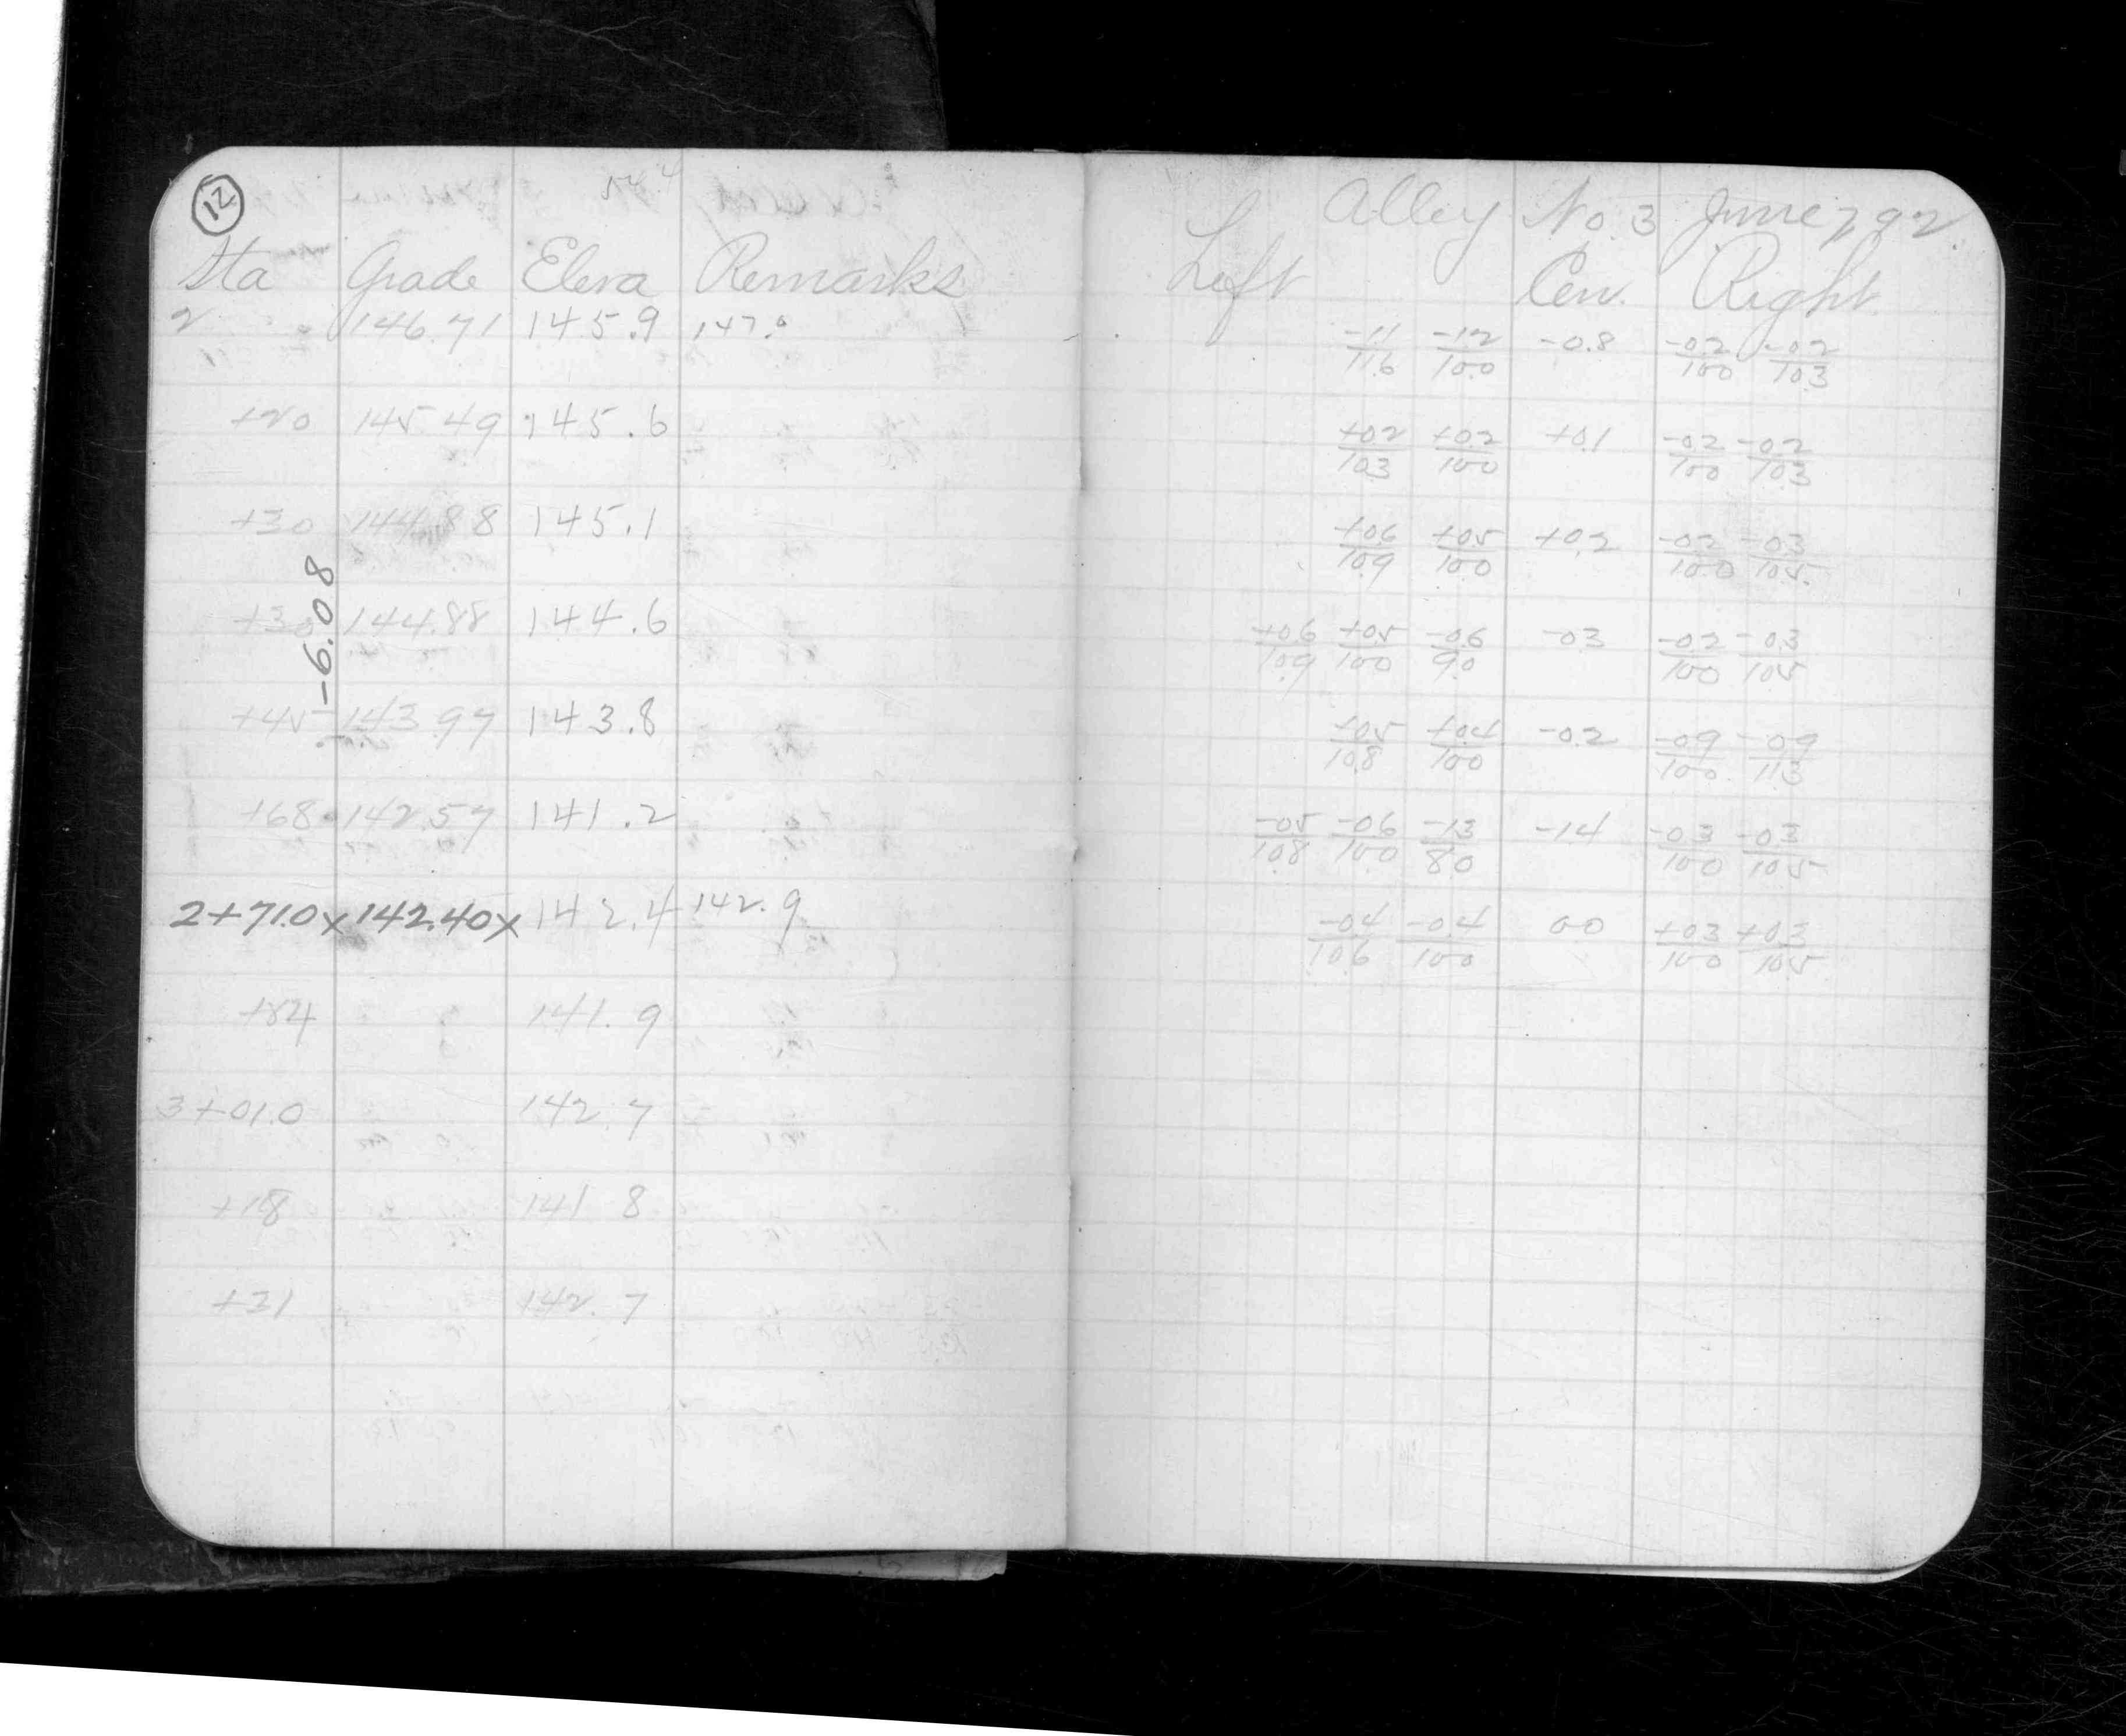 12
Sta Grade Eleva Remarks
2 146.71 145.9 147.0
+20 145.49 145.6
+30 144.88 145.1
-6.08
+30 144.88 144.6
+45 143.97 143.8
+68 142.57 141.2
2+71.0x 142.40x 142.4 142.9
+84 141.9
3+01.0 142.7
+18 141.8
+31 142.7
Alley No. 3 June 7 92.
Left Cen. Right
-11/11.6 -12/10.0 -0.8 -02/100 -02/10.3
+02/10.3 +0.2/100 +0.1 -02/100 -02/10.3
+0.6/10.9 +0.5/10.0 +0.2 -02/10.0 -03/10.5
+0.6/10.9 +05/100 -0.6/9.0 -03 -02/100 -0.3/10.5
+05/10.8 +0.4/100 -0.2 -09/100 -09/11.3
-05/10.8 -06/100 -13/80 -14 -03/100 -03/105
-04/10.6 -0.4/100 00 +03/100 +0.3/105